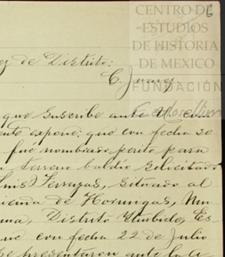 6
CENTRO DE
ESTUDIOS
DE HISTORIA
DE MEXICO
FUNDACIÓN
ez de Distrito:
C. Juarez
que suscribe ante U. con
ente expone: que con fecha
fue nombrado perito para
terreno baldio solicitado
Luis Terrazas, situado al
cienda de Hormigas, Mu
ma, Distrito Iturbide, Es
que con fecha 22 de Julio
se presentaron ante la